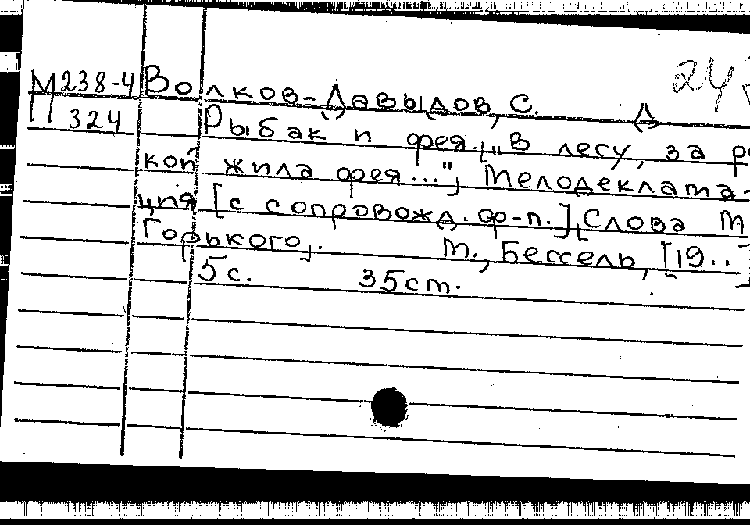 24
М 238-4 Волков-Давыдов, С. Д
324 Рыбак и фея. „В лесу, за р
кой жила фея...", Мелодеклама-
ция [с сопровожд. ф-п.], Слова М
Горького,. М., Бессель, [19..]
5с. 35см.